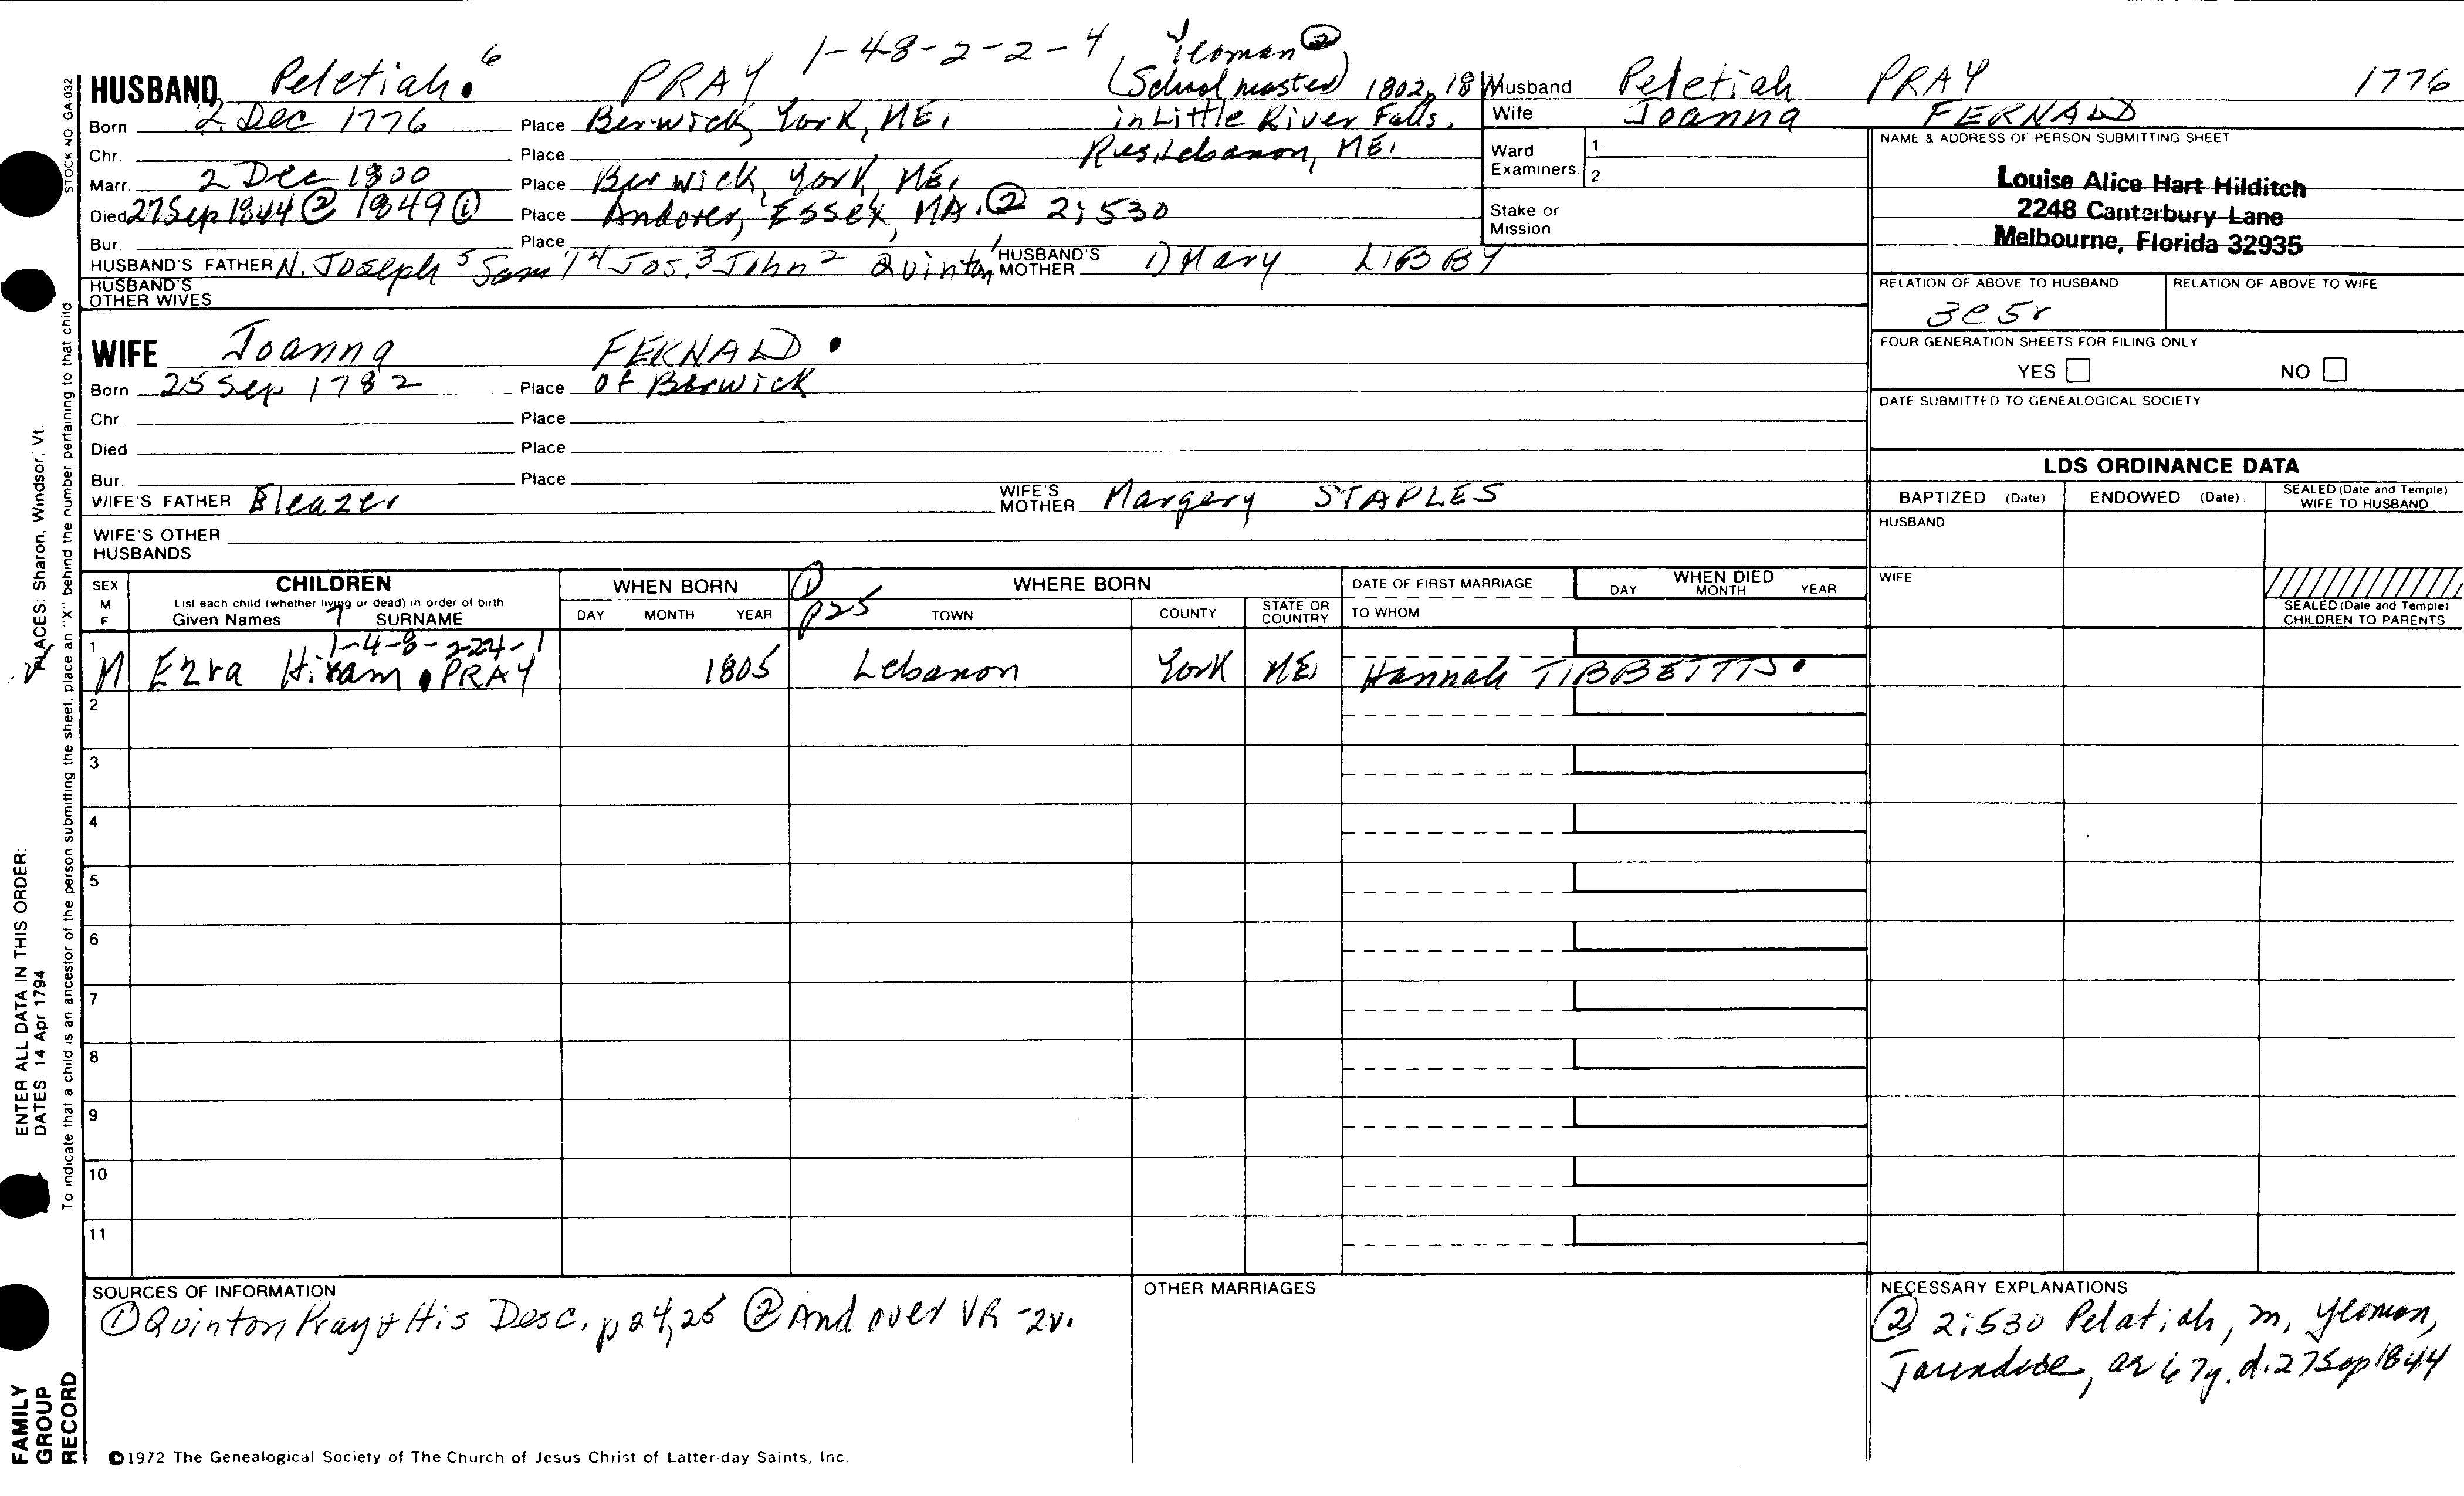 1-48-2-2-4 Yeoman ②
HUSBAND Peletiah 6 PRAY (School master) 1802, 18
Born 2 Dec 1776 Place Berwick, York, ME. in Little River Falls.
Chr. Place Res. Lebanon, ME.
Marr. 2 Dec 1800 Place Berwick, York, ME.
Died 27 Sep 1844 ② 1849 ① Place Andover, Essex, MA. ② 2:530
Bur. Place
HUSBAND'S FATHER N. Joseph 5 Sam'l 4 Jos. 3 John 2 Quinton 1 HUSBAND'S MOTHER 1) Mary LIBBY
HUSBAND'S OTHER WIVES
WIFE Joanna FERNALD
Born 25 Sep 1782 Place of Berwick
Chr. Place
Died Place
Bur. Place
WIFE'S FATHER Eleazer WIFE'S MOTHER Margery STAPLES
WIFE'S OTHER HUSBANDS
Husband Peletiah PRAY 1776
Wife Joanna FERNALD
Ward Examiners: 1. 2.
Stake or Mission
NAME & ADDRESS OF PERSON SUBMITTING SHEET
Louise Alice Hart Hilditch
2248 Canterbury Lane
Melbourne, Florida 32935
RELATION OF ABOVE TO HUSBAND RELATION OF ABOVE TO WIFE
3c5r
FOUR GENERATION SHEETS FOR FILING ONLY
YES NO
DATE SUBMITTED TO GENEALOGICAL SOCIETY
LDS ORDINANCE DATA
BAPTIZED (Date) ENDOWED (Date) SEALED (Date and Temple) WIFE TO HUSBAND
HUSBAND
WIFE
SEALED (Date and Temple) CHILDREN TO PARENTS
SEX M F CHILDREN WHEN BORN ① p25 WHERE BORN DATE OF FIRST MARRIAGE WHEN DIED
List each child (whether living or dead) in order of birth
Given Names 7 SURNAME DAY MONTH YEAR TOWN COUNTY STATE OR COUNTRY TO WHOM DAY MONTH YEAR
1-4-8-2-24-1
1 M Ezra Hiram PRAY 1805 Lebanon York ME. Hannah TIBBETTTS
2
3
4
5
6
7
8
9
10
11
SOURCES OF INFORMATION
① Quinton Pray & His Desc. p 24, 25 ② Andover VR -2v.
OTHER MARRIAGES
NECESSARY EXPLANATIONS
② 2:530 Pelatiah, m, yeoman,
Jaundice, ae 67y. d. 27 Sep 1844
©1972 The Genealogical Society of The Church of Jesus Christ of Latter-day Saints, Inc.
STOCK NO GA-032
To indicate that a child is an ancestor of the person submitting the sheet, place an "X" behind the number pertaining to that child
ENTER ALL DATA IN THIS ORDER:
DATES: 14 Apr 1794
PLACES: Sharon, Windsor, Vt.
FAMILY
GROUP
RECORD